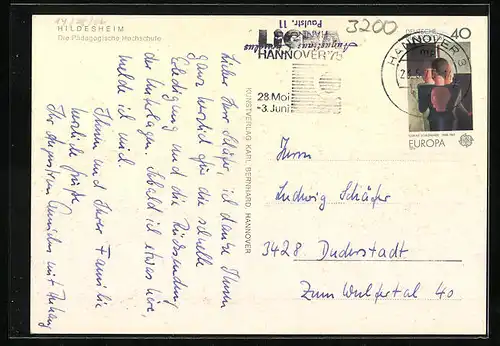 14/80/02
HILDESHEIM
Die Pädagogische Hochschule
3200
Paulstr. 11
LIGNA
HANNOVER '75
28. Mai
-3. Juni
HANNOVER 3
DEUTSCHE
40
EUROPA
KUNSTVERLAG KARL BERNHARD, HANNOVER
Lieber Herr Schäfer, ich danke Ihnen
ganz herzlich für die schnelle
Erledigung und die Rücksendung
der Unterlagen. Sobald ich etwas höre,
melde ich mich.
Ihnen und Ihrer Familie
herzliche Grüße
Ihr
mit Anhang
Herrn
Ludwig Schäfer
3428 Duderstadt
Zum Wulfertal 40